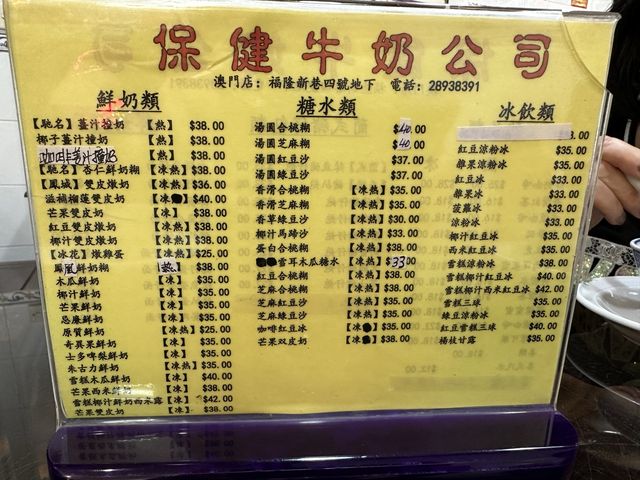 保健牛奶公司
澳門店：福隆新巷四號地下 電話：28938391
鮮奶類
【馳名】薑汁撞奶 【熱】 $38.00
椰子薑汁撞奶 【熱】 $38.00
咖啡薑汁撞奶 【熱】 $38.00
【馳名】杏仁鮮奶糊 【凍熱】 $38.00
【鳳城】雙皮燉奶 【凍熱】 $36.00
滋補榴蓮雙皮奶 【凍】 $40.00
芒果雙皮奶 【凍】 $38.00
紅豆雙皮燉奶 【凍熱】 $38.00
椰汁雙皮燉奶 【凍熱】 $38.00
【冰花】燉雞蛋 【凍熱】 $25.00
鳳凰鮮奶糊 【熱】 $38.00
木瓜鮮奶 【凍】 $35.00
椰汁鮮奶 【凍】 $35.00
芒果鮮奶 【凍】 $35.00
忌廉鮮奶 【凍】 $35.00
原質鮮奶 【凍熱】 $25.00
奇異果鮮奶 【凍】 $35.00
士多啤梨鮮奶 【凍】 $35.00
朱古力鮮奶 【凍熱】 $35.00
雪糕木瓜鮮奶 【凍】 $40.00
芒果西米鮮奶 【凍】 $38.00
雪糕椰汁鮮奶西米露 【凍】 $42.00
芒果雙皮奶 【凍】 $38.00
糖水類
湯圓合桃糊 $40.00
湯圓芝麻糊 $40.00
湯圓紅豆沙 $37.00
湯圓綠豆沙 $37.00
香滑合桃糊 【凍熱】 $35.00
香滑芝麻糊 【凍熱】 $35.00
香草綠豆沙 【凍熱】 $30.00
椰汁馬玲沙 【凍熱】 $33.00
蛋白合桃糊 【凍熱】 $38.00
雪耳木瓜糖水 【凍熱】 $33.00
紅豆合桃糊 【凍熱】 $38.00
芝麻合桃糊 【凍熱】 $35.00
芝麻紅豆沙 【凍熱】 $35.00
芝麻綠豆沙 【凍熱】 $35.00
咖啡紅豆冰 【凍】 $35.00
芒果双皮奶 【凍】 $38.00
冰飲類
8.00
紅豆涼粉冰 $35.00
雜果涼粉冰 $35.00
紅豆冰 $33.00
雜果冰 $33.00
菠蘿冰 $33.00
涼粉冰 $33.00
椰汁紅豆冰 $35.00
西米紅豆冰 $35.00
雪糕涼粉冰 $38.00
雪糕椰汁紅豆冰 $40.00
雪糕椰汁西米紅豆冰 $42.00
雪糕三球 $35.00
綠豆涼粉冰 $35.00
紅豆雪糕三球 $40.00
楊枝甘露 $35.00